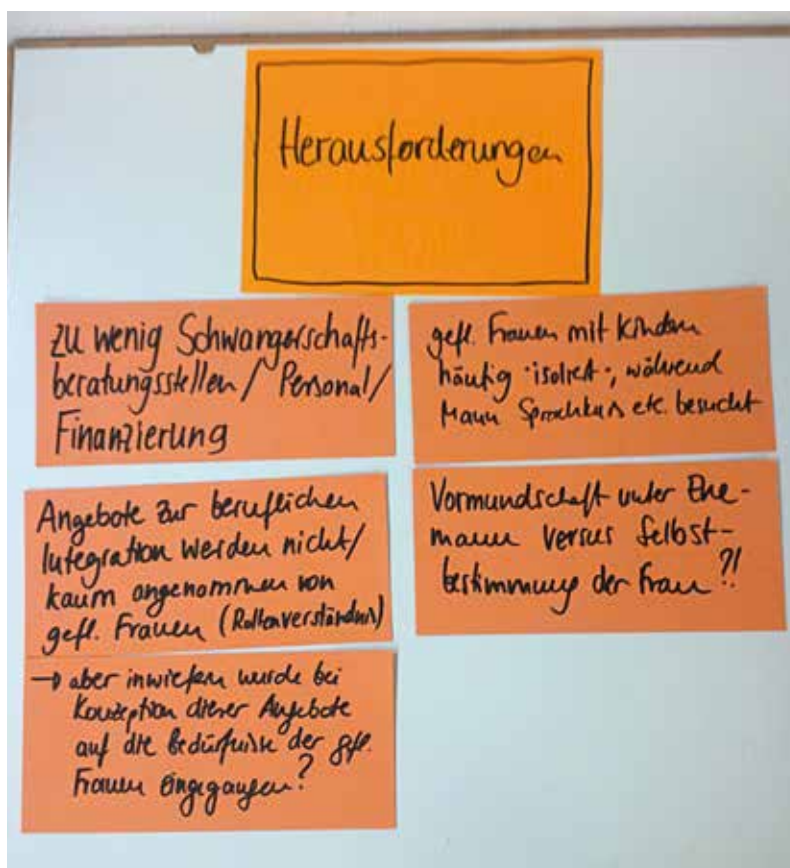 Herausforderungen
zu wenig Schwangerschafts-
beratungsstellen / Personal /
Finanzierung
Angebote zur beruflichen
Integration werden nicht/
kaum angenommen von
gefl. Frauen (Rollenverständnis)
→ aber inwiefern wurde bei
Konzeption dieser Angebote
auf die Bedürfnisse der gefl.
Frauen eingegangen?
gefl. Frauen mit Kindern
häufig "isoliert", während
Mann Sprachkurs etc. besucht
Vormundschaft unter Ehe-
mann versus Selbst-
bestimmung der Frau?!